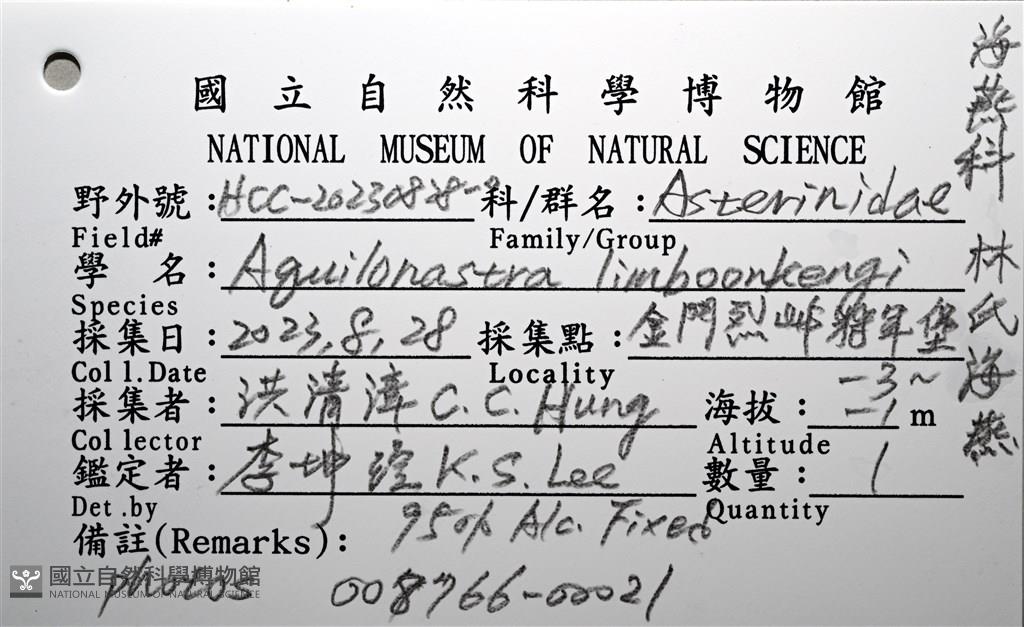 國立自然科學博物館
NATIONAL MUSEUM OF NATURAL SCIENCE
野外號:HCC-20230828-9 科/群名:Asterinidae
Field# Family/Group
學 名:Aquilonastra limboonkengi
Species
採集日:2023,8,28 採集點:金門烈嶼將軍堡
Coll.Date Locality
採集者:洪清漳 C. C. Hung 海拔:-3~-1 m
Collector Altitude
鑑定者:李坤瑄 K.S. Lee 數量:1
Det.by Quantity
備註(Remarks): 95% Alc. Fixed
photos 008766-00021
海燕科 林氏海燕
國立自然科學博物館
NATIONAL MUSEUM OF NATURAL SCIENCE